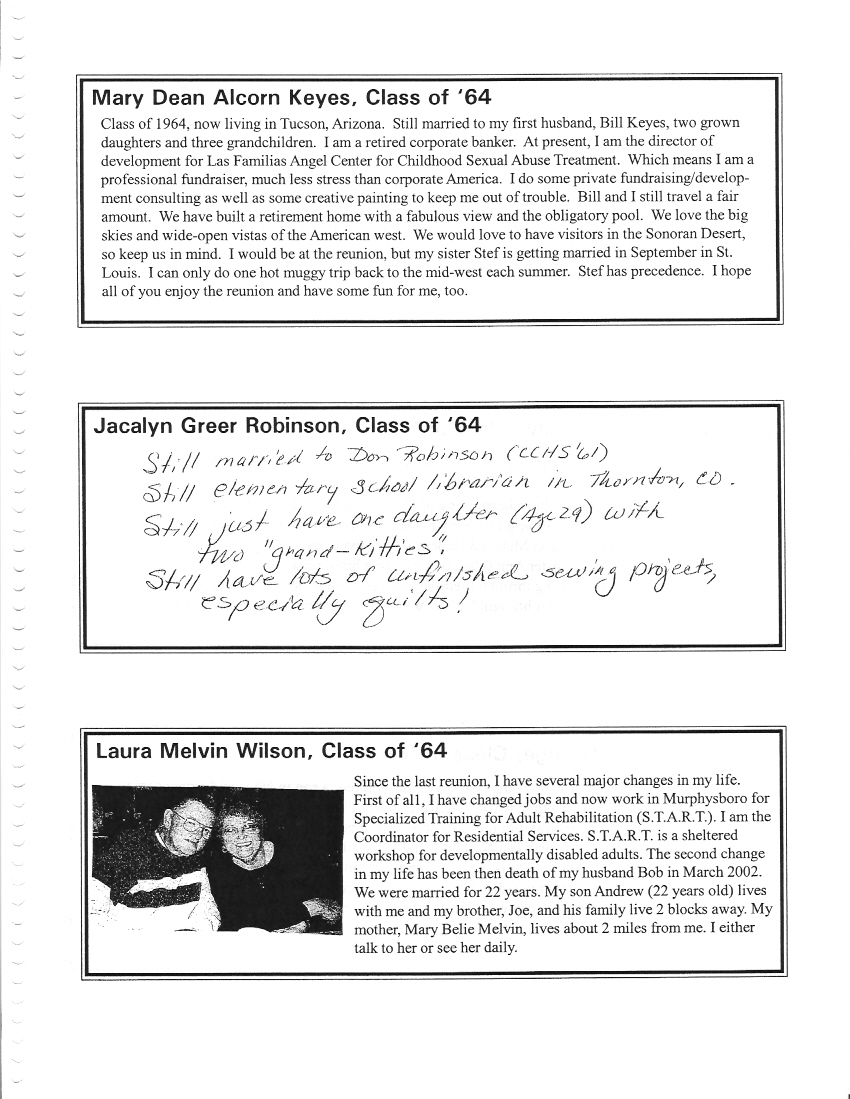 Mary Dean Alcorn Keyes, Class of ‘64
Class of 1964, now living in Tucson, Arizona. Still married to my first husband, Bill Keyes, two grown
daughters and three grandchildren. I am a retired corporate banker. At present, I am the director of
development for Las Familias Angel Center for Childhood Sexual Abuse Treatment. Which means I am a
professional fundraiser, much less stress than corporate America. I do some private fundraising/develop-
ment consulting as well as some creative painting to keep me out of trouble. Bill and I still travel a fair
amount. We have built a retirement home with a fabulous view and the obligatory pool. We love the big
skies and wide-open vistas of the American west. We would love to have visitors in the Sonoran Desert,
so keep us in mind. I would be at the reunion, but my sister Stef is getting married in September in St.
Louis. I can only do one hot muggy trip back to the mid-west each summer. Stef has precedence. I hope
all of you enjoy the reunion and have some fun for me, too.
Jacalyn Greer Robinson, Class of ‘64
Still married to Don Robinson (CCHS '61)
Still elementary school librarian in Thornton, CO.
Still just have one daughter (Age 29) with
two "grand-kitties".
Still have lots of unfinished sewing projects,
especially quilts!
Laura Melvin Wilson, Class of ‘64
Since the last reunion, I have several major changes in my life.
First of all, I have changed jobs and now work in Murphysboro for
Specialized Training for Adult Rehabilitation (S.T.A.R.T.). I am the
Coordinator for Residential Services. S.T.A.R.T. is a sheltered
workshop for developmentally disabled adults. The second change
in my life has been then death of my husband Bob in March 2002.
We were married for 22 years. My son Andrew (22 years old) lives
with me and my brother, Joe, and his family live 2 blocks away. My
mother, Mary Belie Melvin, lives about 2 miles from me. I either
talk to her or see her daily.